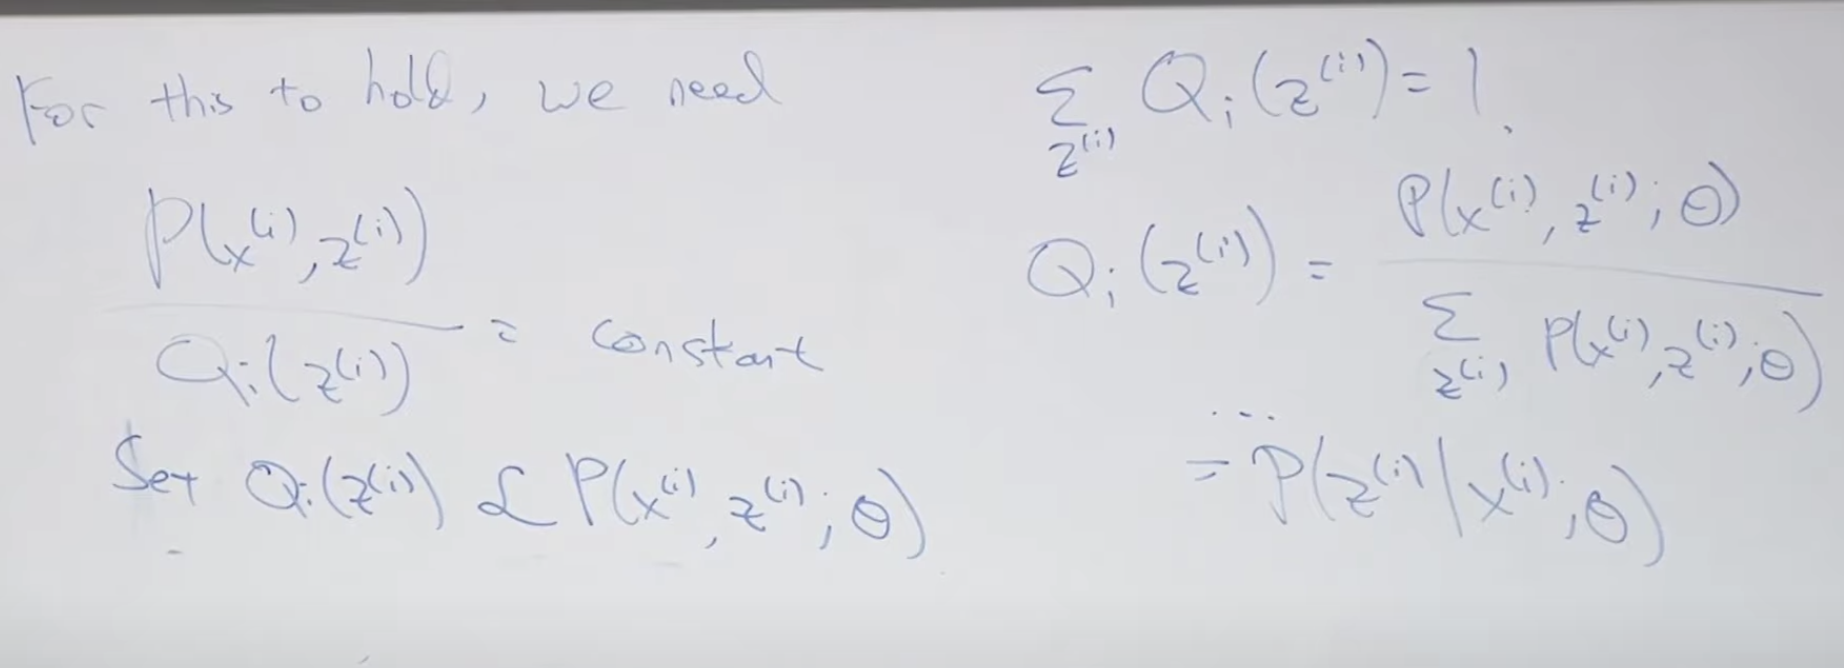 For this to hold, we need
P(x^(i), z^(i))
Q_i(z^(i))
= constant
Set Q_i(z^(i)) ∝ P(x^(i), z^(i); θ)
Σ_{z^(i)} Q_i(z^(i)) = 1.
Q_i(z^(i)) =
P(x^(i), z^(i); θ)
Σ_{z^(i)} P(x^(i), z^(i); θ)
...
= P(z^(i) | x^(i); θ)